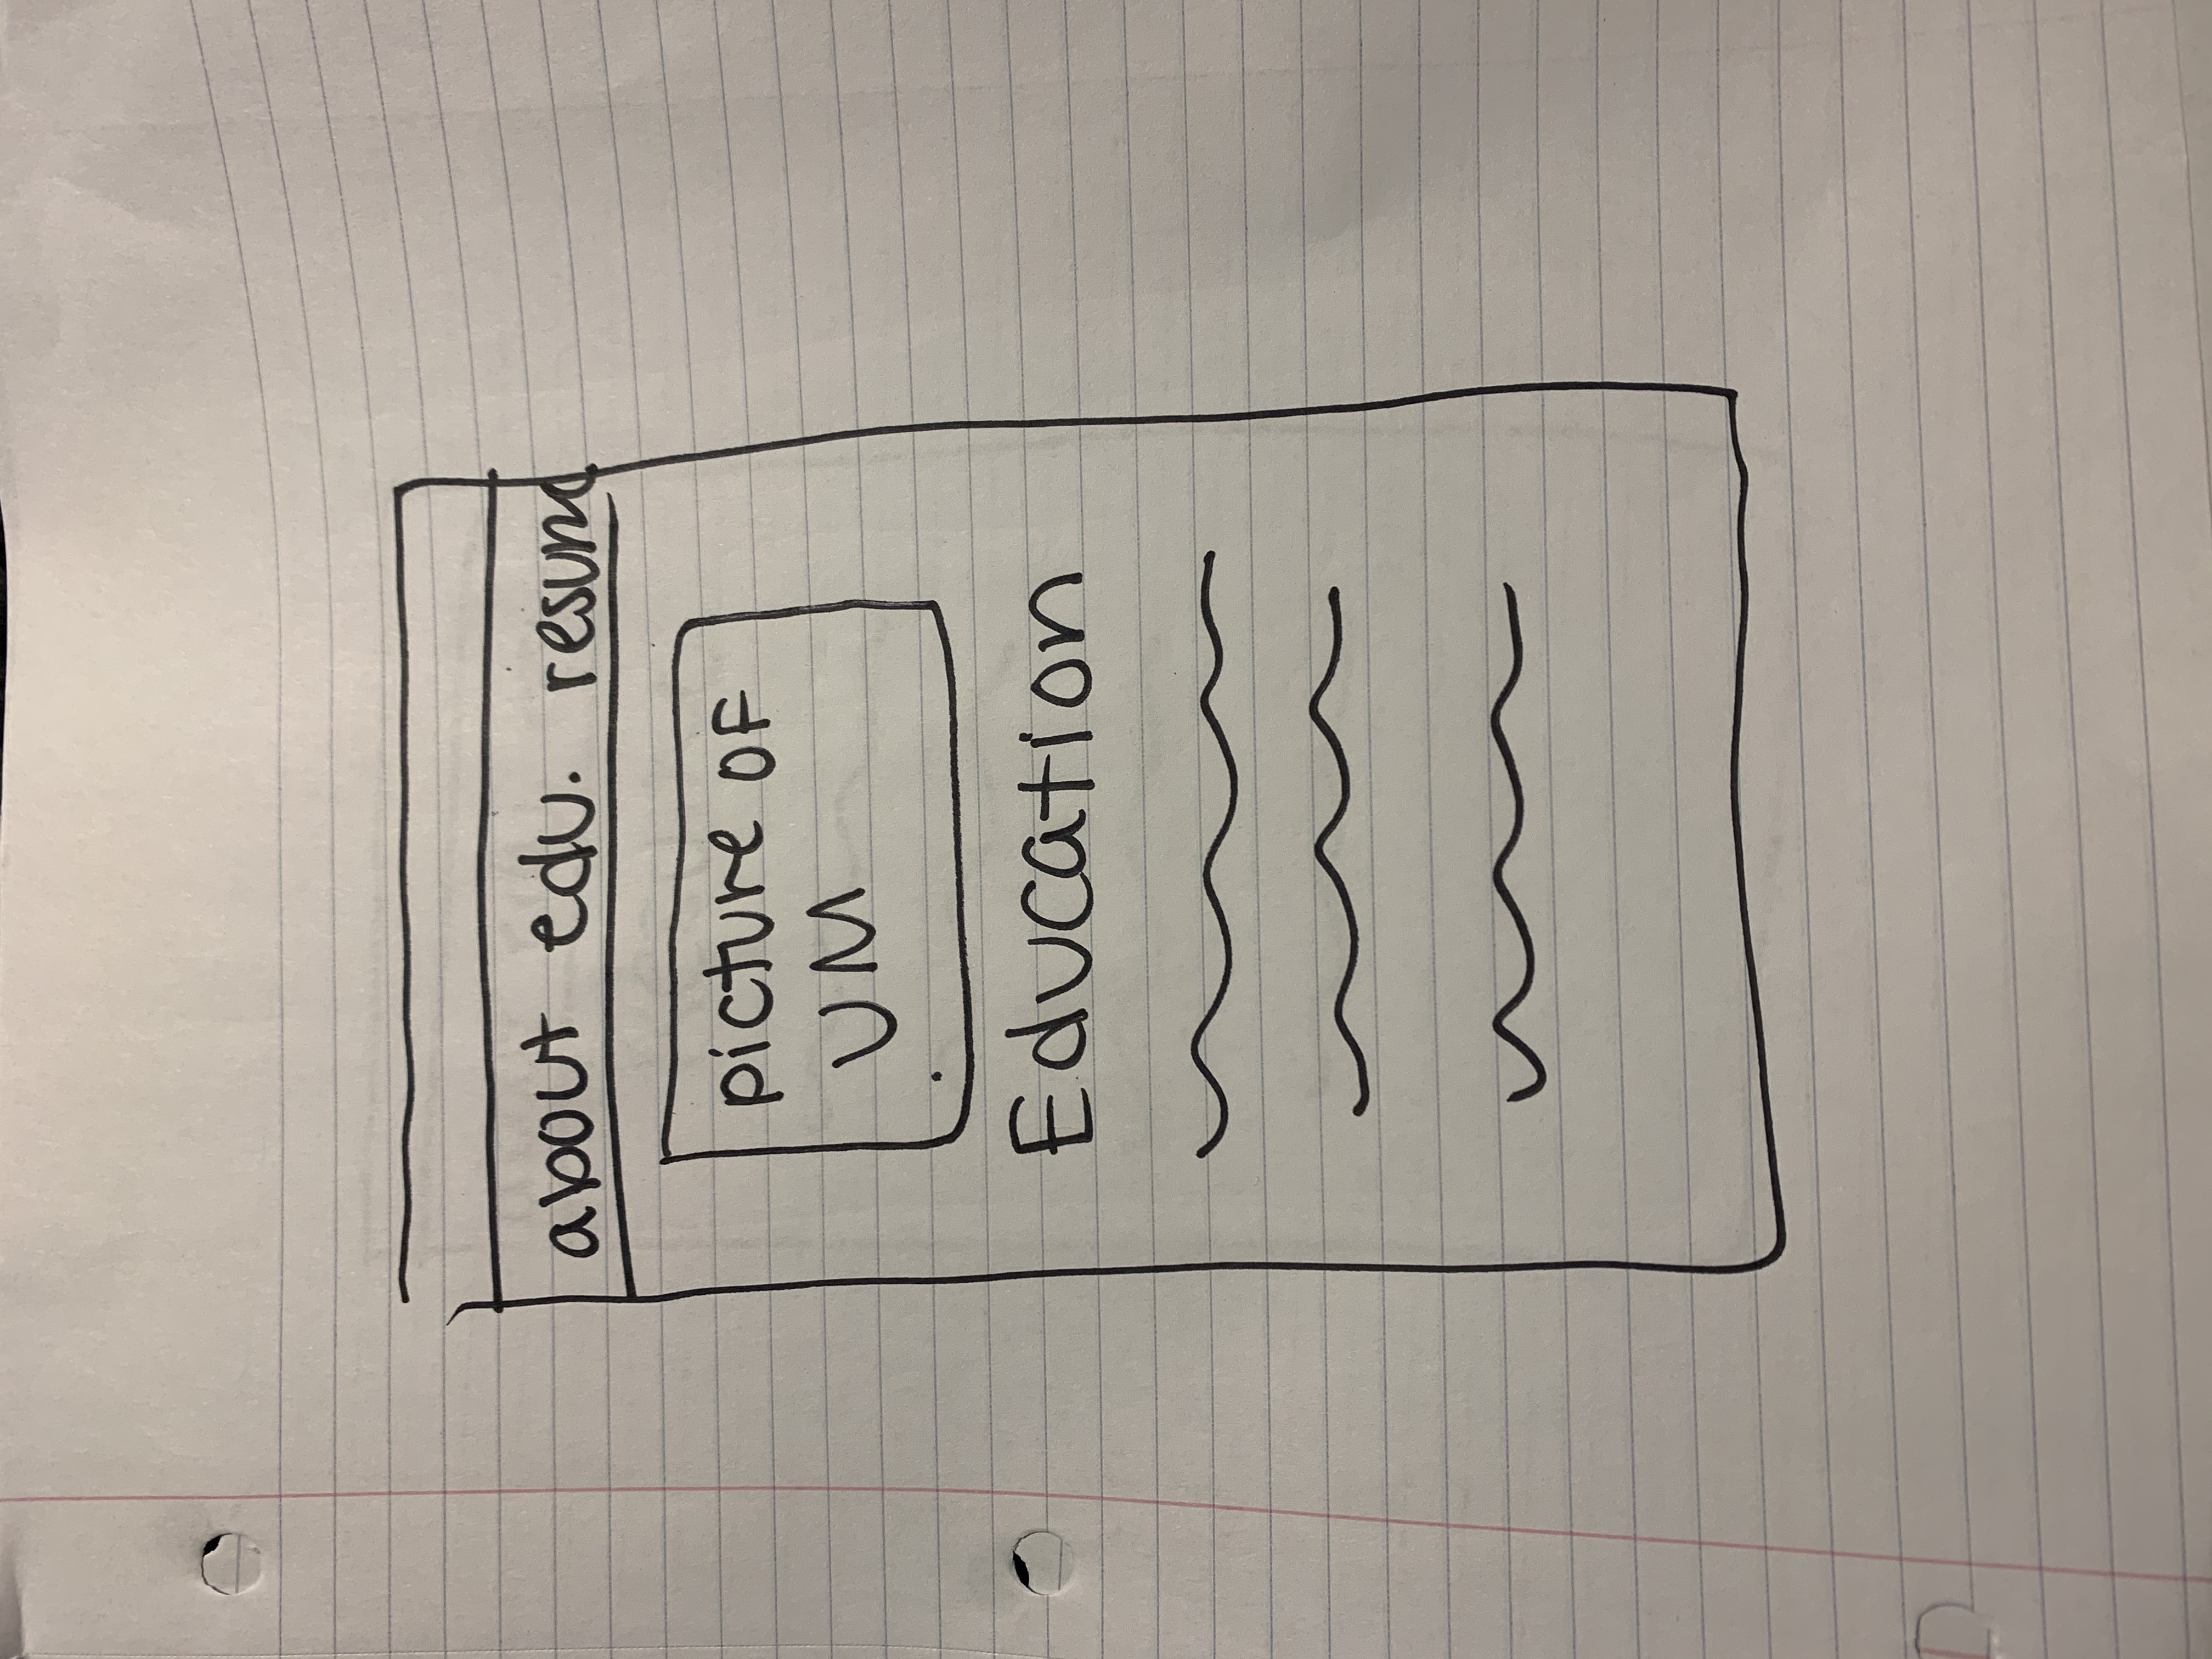 about edu. resume
picture of
UM
Education